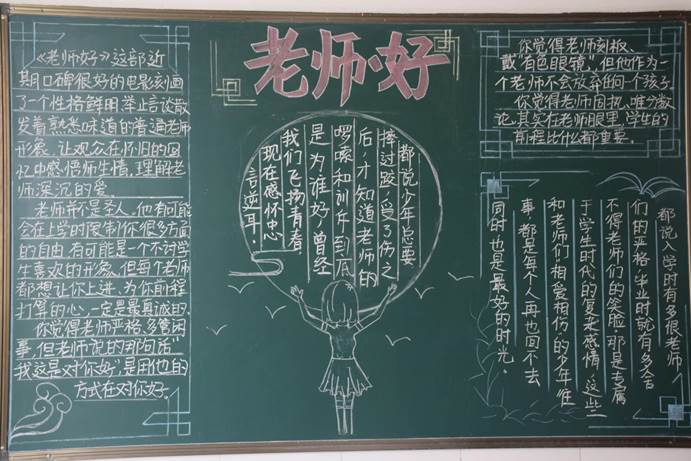 老师·好
《老师好》这部近
期口碑很好的电影刻画
了一个性格鲜明举止言谈散
发着熟悉味道的普通老师
形象。让观众在怀旧的回
忆中感悟师生情，理解老
师深沉的爱。
老师并不是圣人，他有可能
会在上学时限制你很多方面
的自由，有可能是一个不讨学
生喜欢的形象，但每个老师
都想让你上进，为你前程
打算的心，一定是最真诚的。
你觉得老师严格，多管闲
事，但老师说的那句话"
我这是对你好"，是用他的
方式在对你好。
都说少年总要
摔过跤，受了伤之
后，才知道老师的
啰嗦和训斥到底
是为谁好，曾经
我们飞扬青春，
现在感怀忠
言逆耳。
你觉得老师刻板、
戴"有色眼镜"，但他作为一
个老师不会放弃任何一个孩子。
你觉得老师固执、唯分数
论，其实在老师眼里，学生的
前程比什么都重要。
都说入学时有多恨老师
们的严格，毕业时就有多舍
不得老师们的笑脸，那是专属
于学生时代的复杂感情，这些
和老师们相爱相伤的少年往
事，都是每个人再也回不去
同时也是最好的时光。